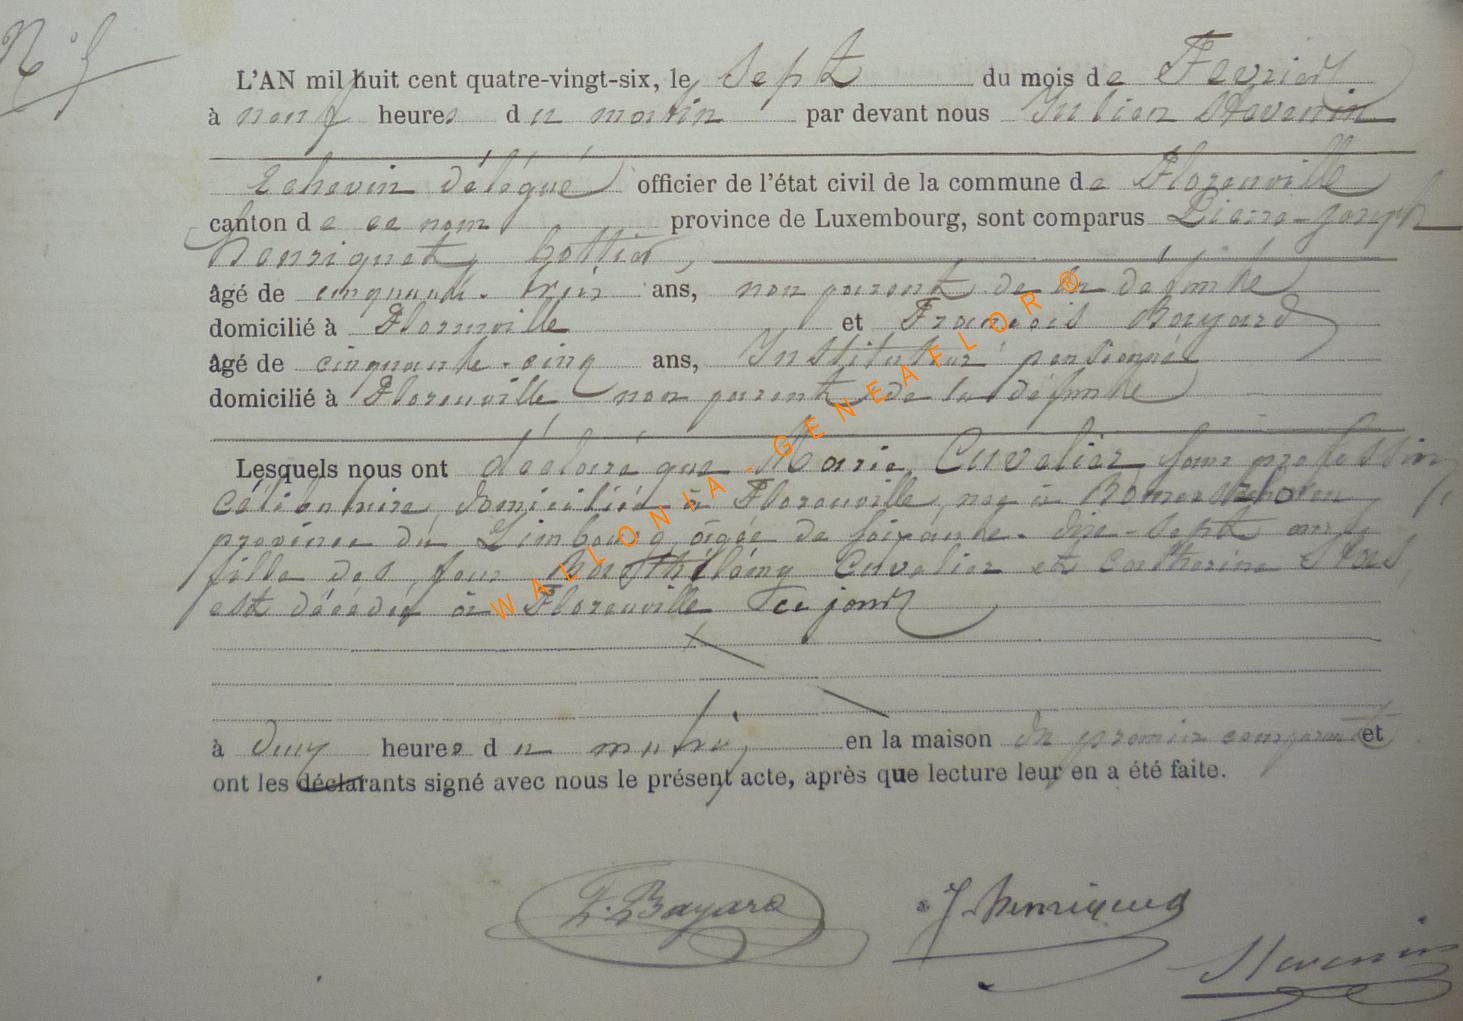 N°
L'AN mil huit cent quatre-vingt-six, le sept du mois de Fevrier
à neuf heures du matin par devant nous Julien
Echevin délégué officier de l'état civil de la commune de Florenville
canton de ce nom province de Luxembourg, sont comparus Pierre-Joseph
Henriquet, bottier,
âgé de cinquante-trois ans, non parent de la défunte
domicilié à Florenville et François Bayard
âgé de cinquante-cinq ans, Instituteur pensionné
domicilié à Florenville non parent de la défunte
Lesquels nous ont déclaré que Marie Cuvelier sans profession
célibataire, domiciliée à Florenville, née à
province du Limbourg, âgée de soixante-dix-sept ans,
fille des feus Barthélémy Cuvelier et Catherine
est décédée à Florenville ce jour
à deux heures du matin, en la maison du premier comparant et
ont les déclarants signé avec nous le présent acte, après que lecture leur en a été faite.
F. Bayard
J. Henriquet
WALLONIA - GENEAFLOR ®